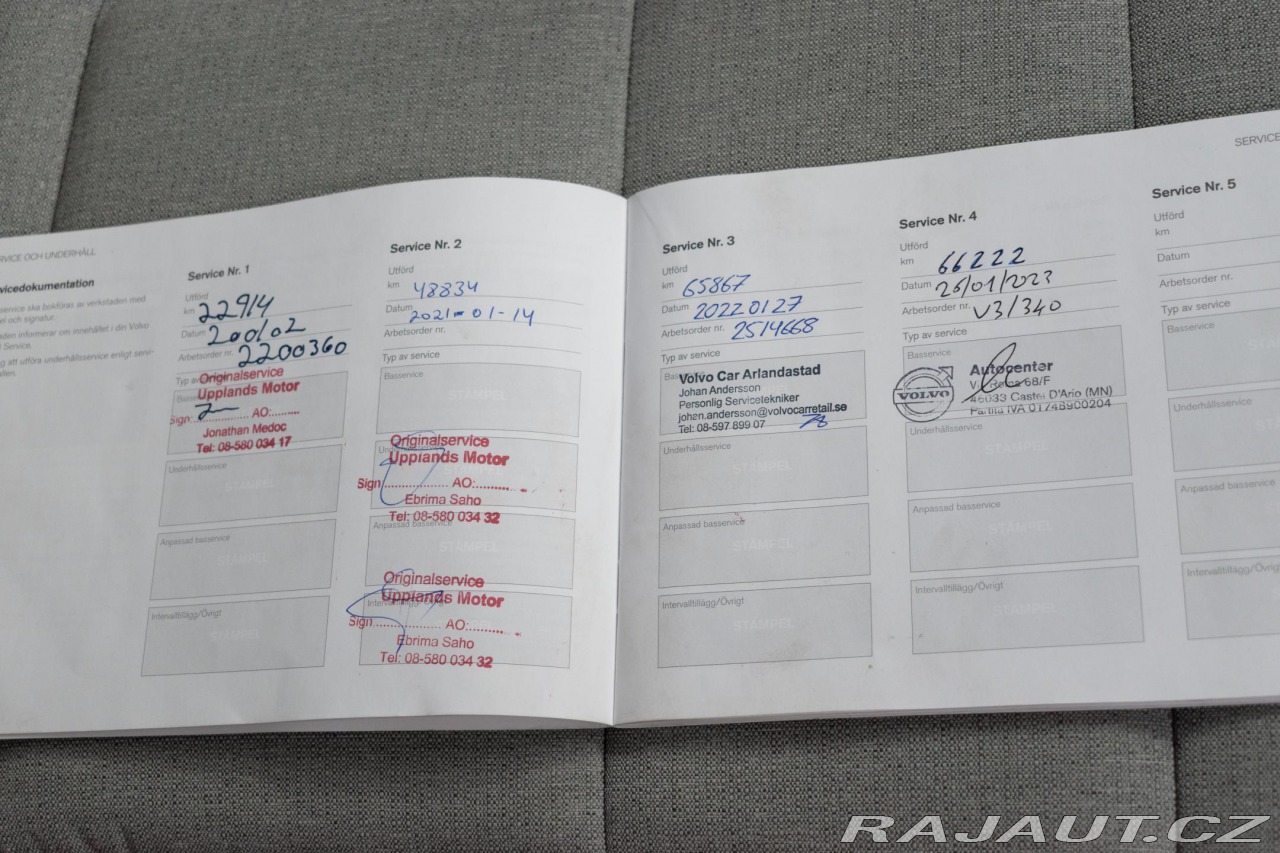 RVICE OCH UNDERHÅLL
vicedokumentation
service ska bokföras av verkstaden med
el och signatur.
aden informerar om innehållet i din Volvo
Service.
g att utföra underhållsservice enligt servi-
allen.
Service Nr. 1
Utförd
km 22914
Datum 200102
Arbetsorder nr. 2200360
Typ av
Originalservice
Upplands Motor
Sign:............... AO:.........
Jonathan Medoc
Tel: 08-580 034 17
Underhållsservice
STÄMPEL
Anpassad basservice
STÄMPEL
Intervalltillägg/Övrigt
STÄMPEL
Service Nr. 2
Utförd
km 48834
Datum 2021-01-14
Arbetsorder nr.
Typ av service
Basservice
STÄMPEL
Originalservice
Upplands Motor
Sign.................. AO:.........
Ebrima Saho
Tel: 08-580 034 32
Anpassad basservice
STÄMPEL
Originalservice
Upplands Motor
Sign.................. AO:.........
Ebrima Saho
Tel: 08-580 034 32
Service Nr. 3
Utförd
km 65867
Datum 20220127
Arbetsorder nr. 2514668
Typ av service
Volvo Car Arlandastad
Johan Andersson
Personlig Servicetekniker
johen.andersson@volvocarretail.se
Tel: 08-597 899 07
Underhållsservice
STÄMPEL
Anpassad basservice
STÄMPEL
Intervalltillägg/Övrigt
STÄMPEL
Service Nr. 4
Utförd
km 66222
Datum 26/01/2023
Arbetsorder nr. V3/340
Typ av service
Basservice
VOLVO
Autocenter
Roma 68/F
46033 Castel D'Ario (MN)
Partita IVA 01748900204
Underhållsservice
STÄMPEL
Anpassad basservice
STÄMPEL
Intervalltillägg/Övrigt
STÄMPEL
SERVICE
Service Nr. 5
Utförd
km
Datum
Arbetsorder nr.
Typ av service
Basservice
Underhållsservice
Anpassad basservice
Intervalltillägg/Övrigt
RAJAUT.CZ